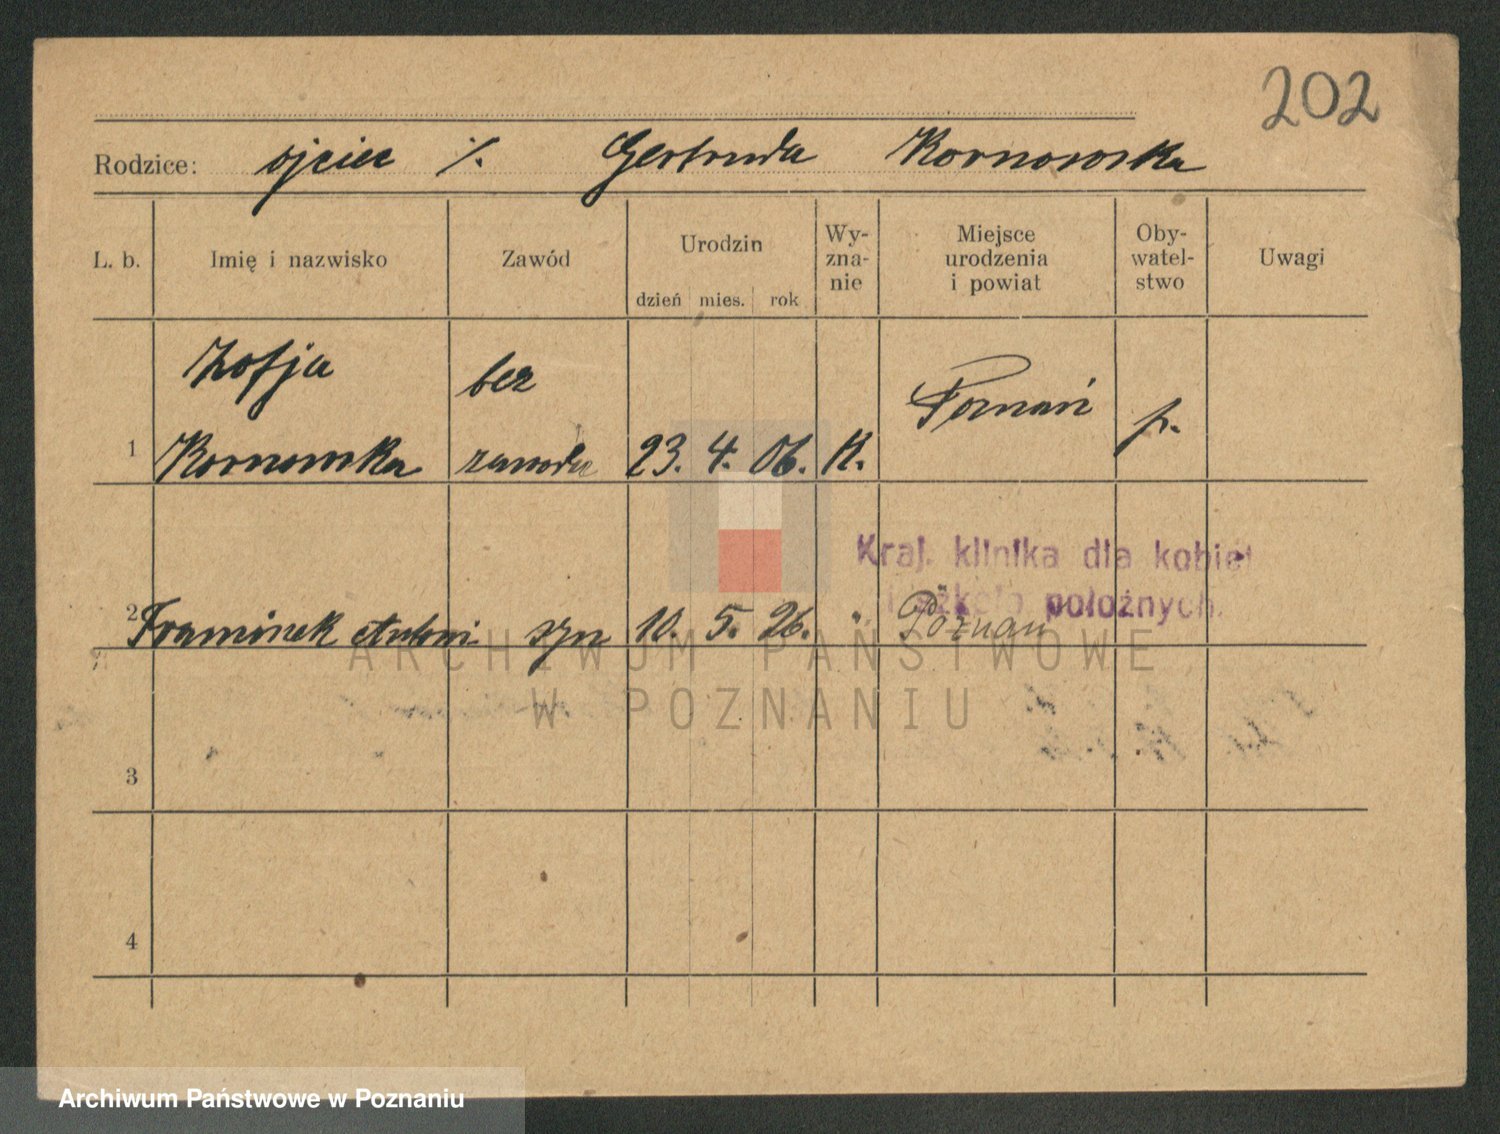 202
Rodzice: ojciec ·/. Gertruda Kornowska
L. b.
Imię i nazwisko
Zawód
Urodzin
dzień mies. rok
Wy-
zna-
nie
Miejsce
urodzenia
i powiat
Oby-
watel-
stwo
Uwagi
Zofja bez
1 Kornowska zawodu 23. 4. 06. K. Poznań p.
Kraj. klinika dla kobiet
i szkoła położnych.
2 Franciszek Antoni syn 10. 5. 26. " Poznań
ARCHIWUM PAŃSTWOWE
W POZNANIU
3
4
Archiwum Państwowe w Poznaniu